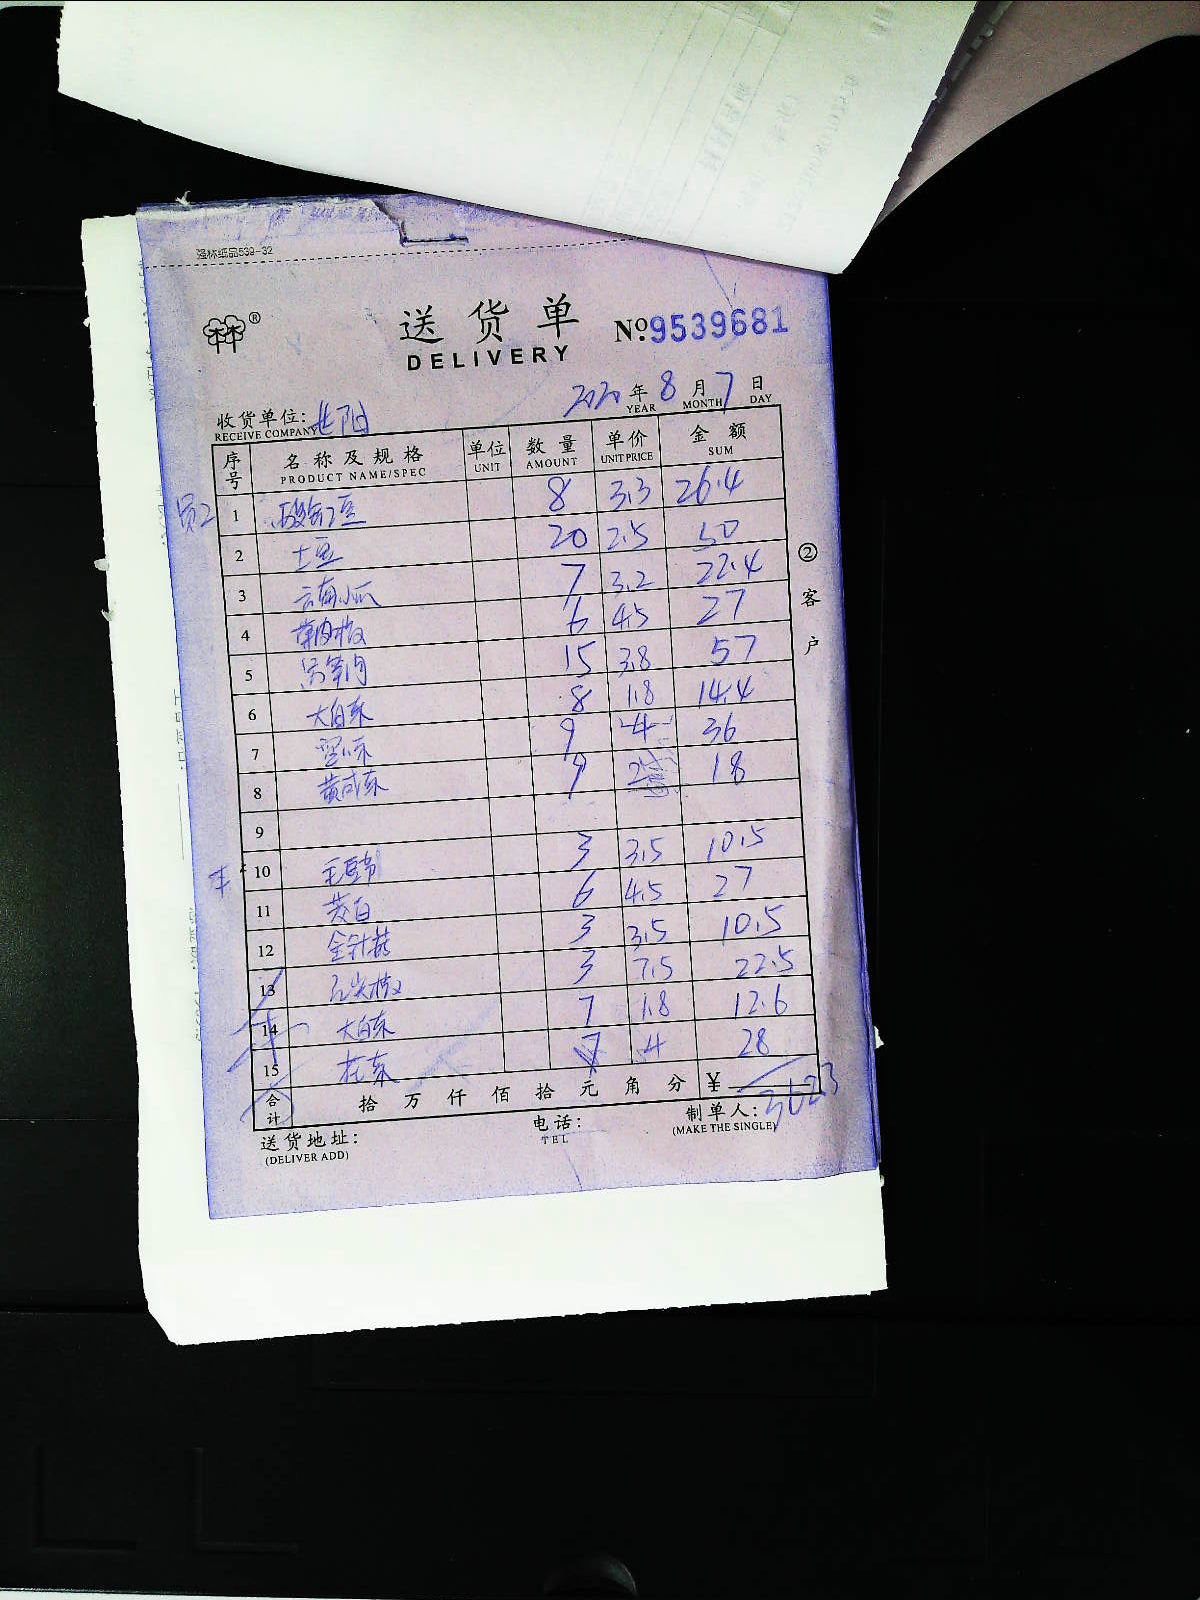 强林纸品539-32
送货单
DELIVERY
№9539681
2020年8月7日
YEAR MONTH DAY
收货单位:
RECEIVE COMPANY
序号 名称及规格 单位 数量 单价 金额
PRODUCT NAME/SPEC UNIT AMOUNT UNIT PRICE SUM
1 酸豇豆 8 3.3 26.4
2 土豆 20 2.5 50
3 云南小瓜 7 3.2 22.4
4 6 4.5 27
5 15 3.8 57
6 大白菜 8 1.8 14.4
7 9 4 36
8 9 2 18
9
10 毛豆 3 3.5 10.5
11 茭白 6 4.5 27
12 金针菇 3 3.5 10.5
13 3 7.5 22.5
14 大白菜 7 1.8 12.6
15 7 4 28
合计 拾 万 仟 佰 拾 元 角 分 ¥ 362.3
送货地址:
(DELIVER ADD)
电话:
TEL
制单人:
(MAKE THE SINGLE)
②客户